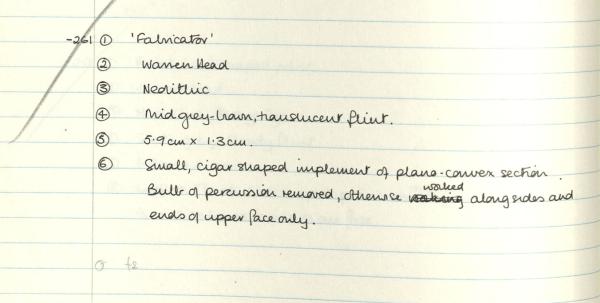 -261 ① 'Fabricator'
② Warren Head
③ Neolithic
④ Mid grey-brown, translucent flint.
⑤ 5.9cm x 1.3cm.
⑥ Small, cigar shaped implement of plano-convex section.
worked
Bulb of percussion removed, otherwise along sides and
ends of upper face only.